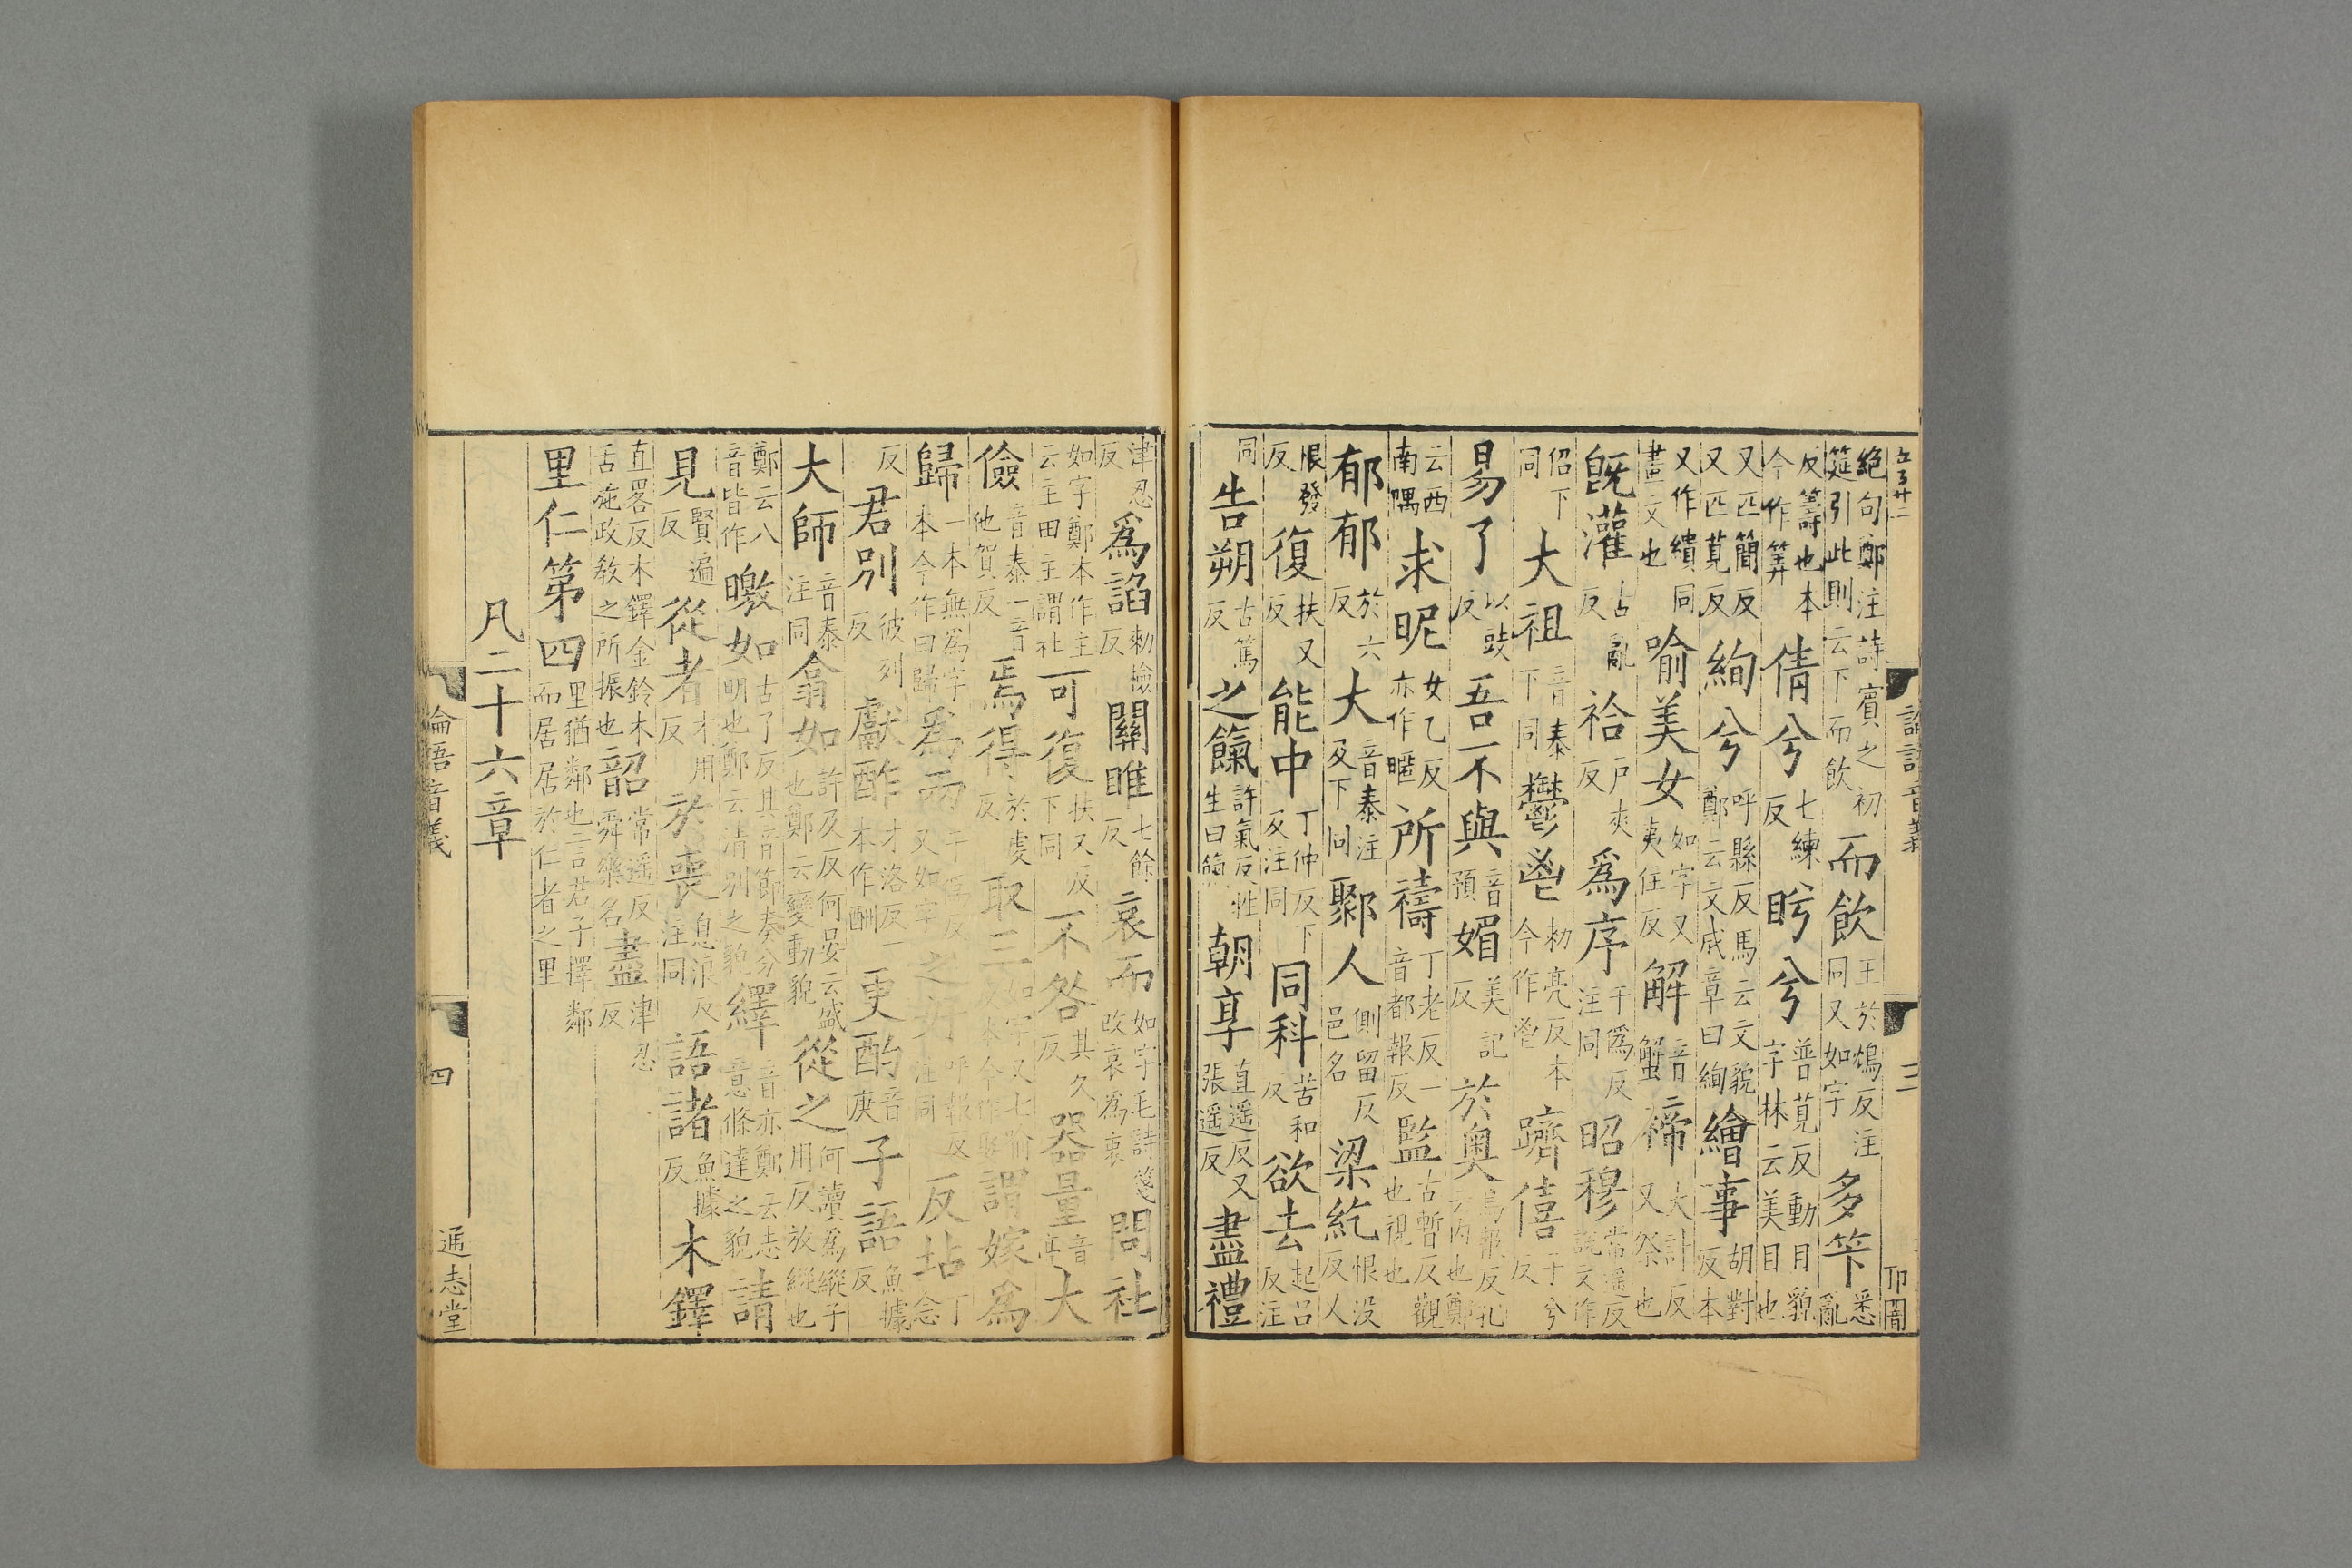 絶句鄭注詩賓之初
筵引此則云下而飲而飲王於鴆反注
同又如字多筭悉
亂
反籌也本
今作筭倩兮七練
反盻兮普莧反動目貌
字林云美目也
又匹簡反
又匹莧反絢兮呼縣反馬云文貌
鄭云文成章曰絢繪事胡對
反本
又作繢同
畫文也喻美女如字又
夷住反解音
蟹禘大計反
又祭也
旣灌古亂
反祫戸夾
反爲序于僞反
注同昭穆常遥反
說文作
佋下
同大祖音泰
下同鬱鬯勑亮反本
今作鬯躋僖子兮
反
易了以豉
反吾不與音
預媚美記
反於奧烏報反孔
云内也鄭
云西
南隅求昵女乙反
亦作暱所禱丁老反一
音都報反監古暫反觀
也視也
郁郁於六
反大音泰注
及下同鄹人側留反
邑名梁紇恨没
反人
恨發
反復扶又
反能中丁仲反下
反注同同科苦和
反欲去起呂
反注
同告朔古篤
反之餼許氣反牲
生曰餼朝享直遥反又
張遥反盡禮
津忍
反爲諂勑檢
反關雎七餘
反哀而如字毛詩箋
改哀爲衷問社
如字鄭本作主
云主田主謂社可復扶又反
下同不咎其久
反器量音
亮大
儉音泰一音
他賀反焉得於虔
反取三如字又七喻
本今作娶謂嫁爲
歸一本無爲字
本今作曰歸爲兩于僞反
又如字之好呼報反
注同反坫丁
念
反君別彼列
反獻酢才洛反一
本作酬更酌音
庚子語魚據
反
大師音泰
注同翕如許及反何晏云盛
也鄭云變動貌從之何讀爲縱子
用反放縱也
鄭云八
音皆作皦如古了反其音節奏分
明也鄭云清別之貌繹音亦鄭云志
意條達之貌請
見賢遍
反從者才用
反於喪息浪反
注同語諸魚據
反木鐸
直畧反木鐸金鈴木
舌施政教之所振也韶常遥反
舜樂名盡津忍
反
里仁第四里猶鄰也言君子擇鄰
而居居於仁者之里
凡二十六章
論語音義
三
卬闇
論語音義
四
通志堂